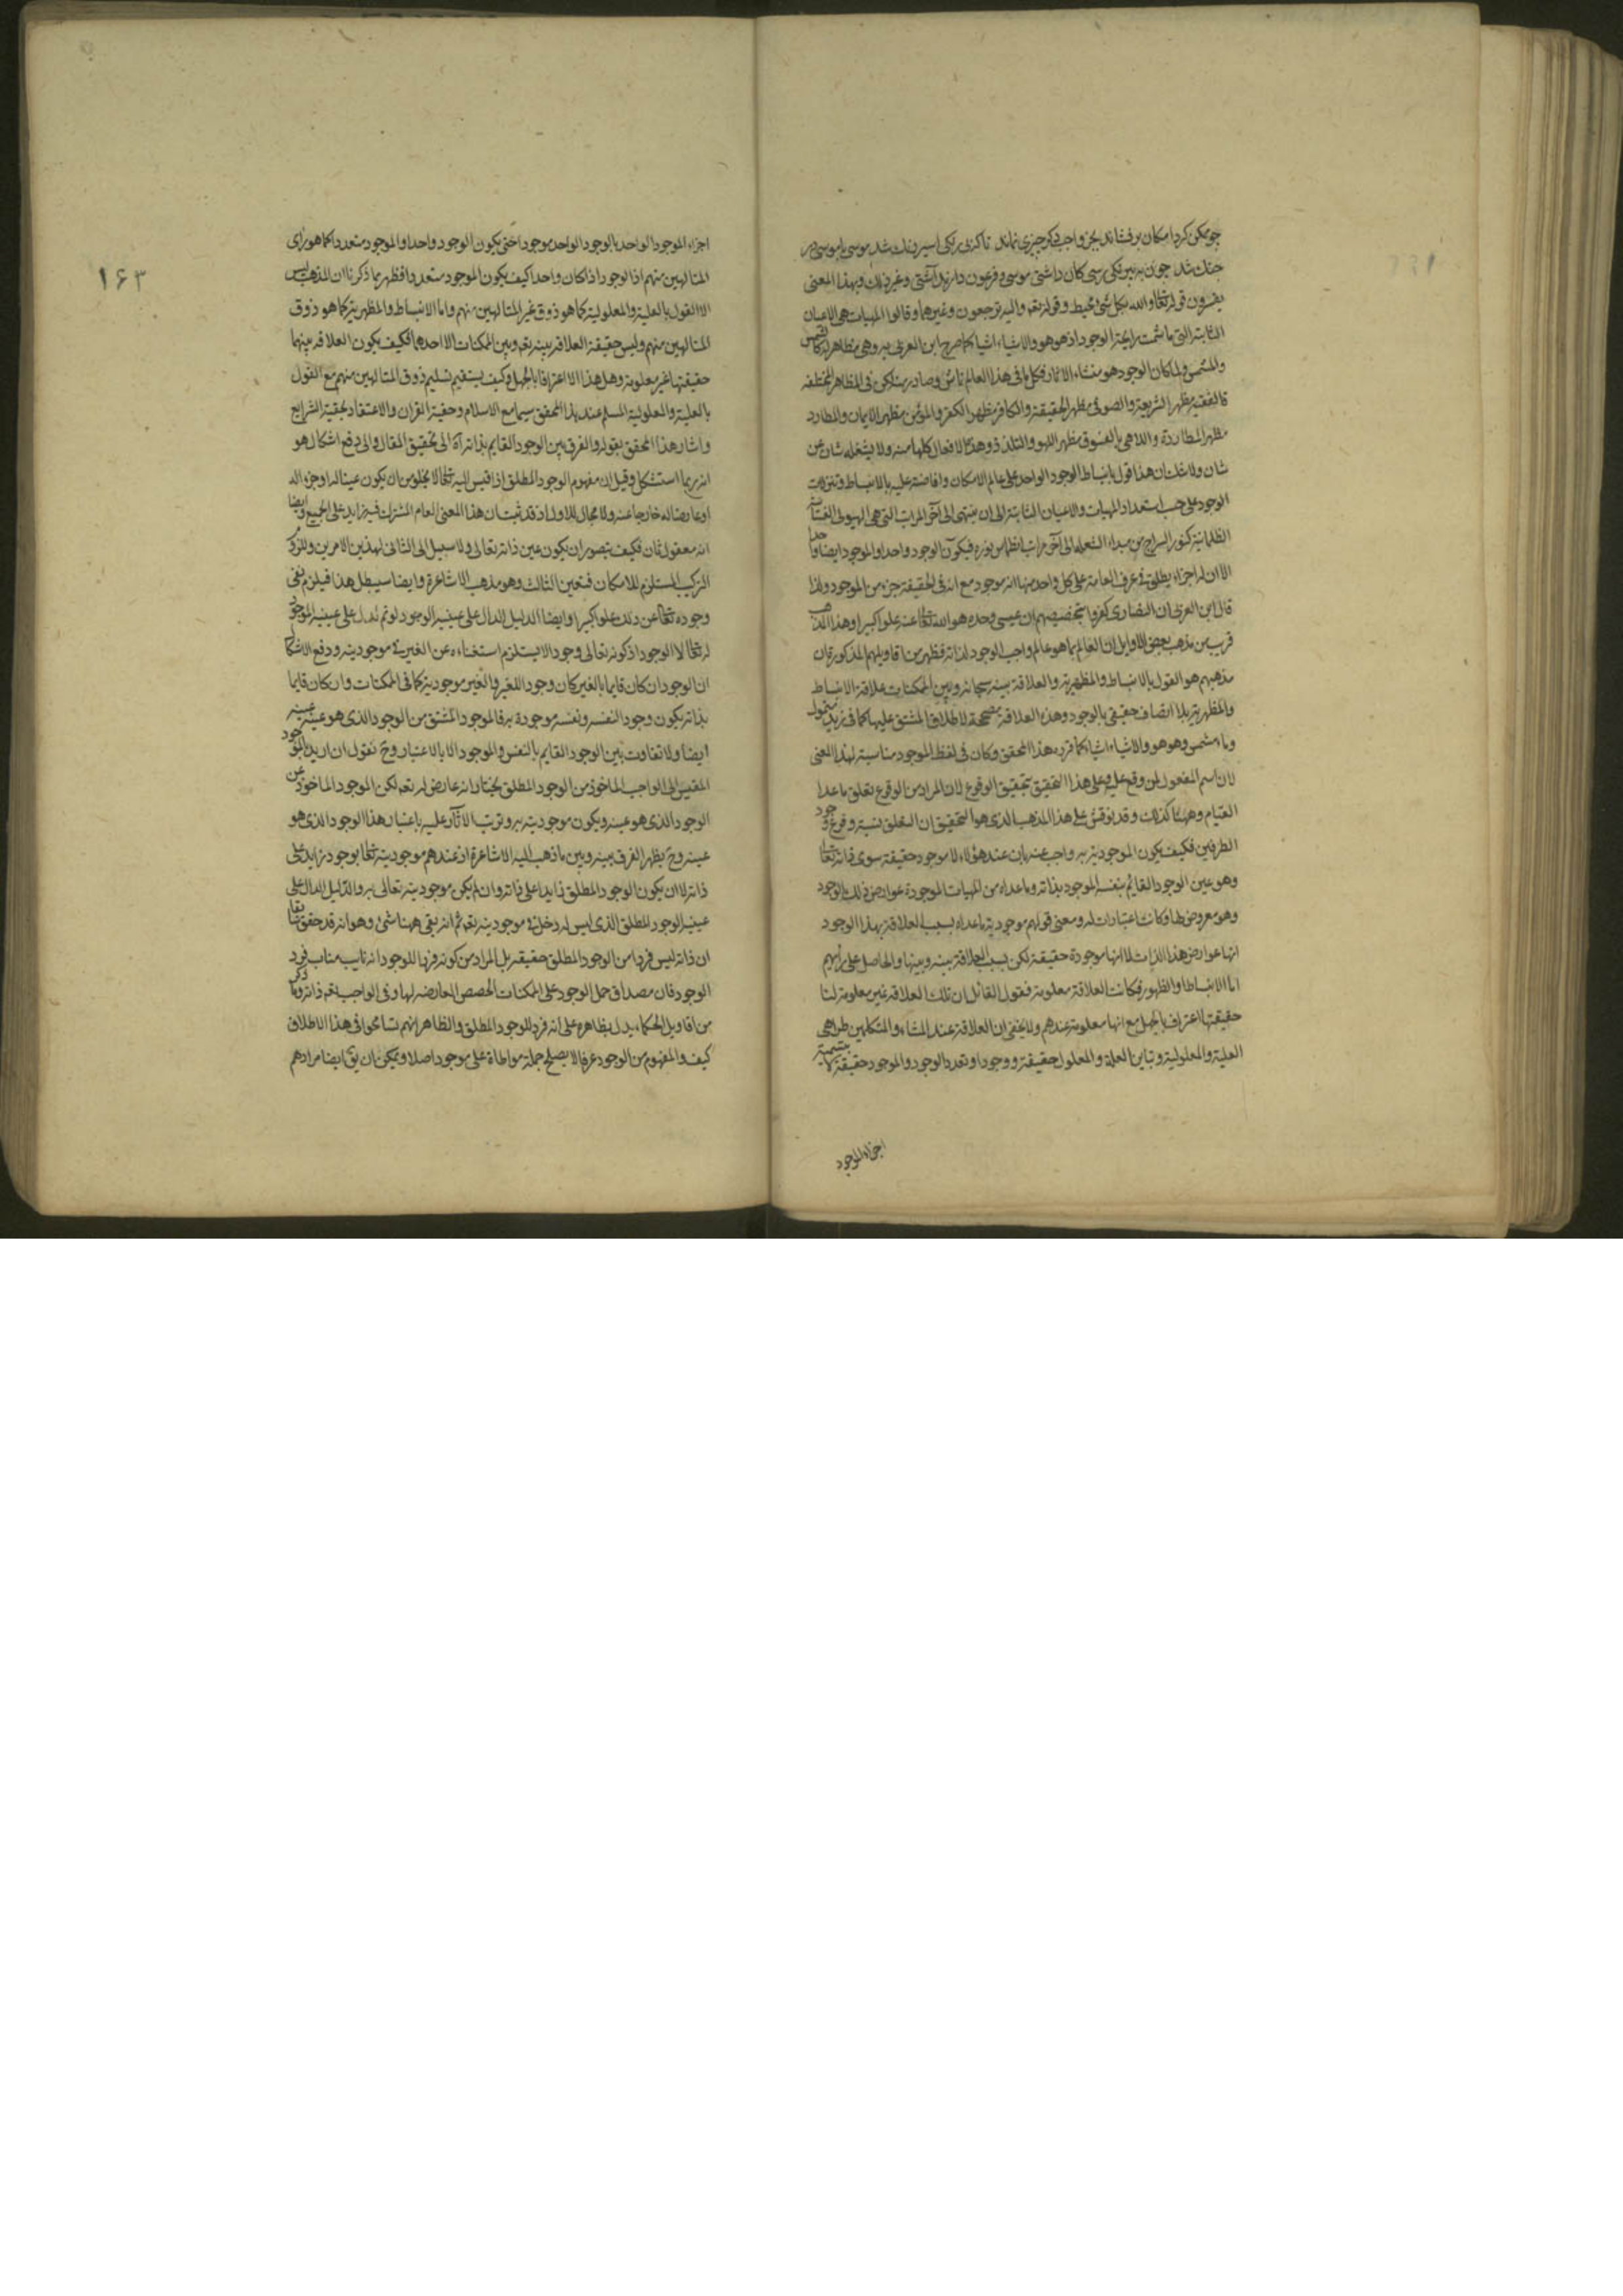 چو ممکن کرد امکان برفشاند بجز واجب دکر چیزی نماند تا که بی رنکی اسیر رنک شد موسی با موسی در
جنك شد چون به بیرنکی رسی کان داشتی موسی و فرعون دارند آشتی وغیر ذلك وبهذا المعنی
یفسرون قوله تعالی والله بکل شئ محیط وقوله تعم والیه ترجعون وغیرها وقالوا المهیات هی الاعیان
الثابتة التی ما شمت رایحة الوجود اذ هو هو والاشیاء اشیا کما صرح ابن العربی به وهی مظاهر له کالشمس
والمشمس ولما کان الوجود هو منشاء الاثار فکل ما فی هذا العالم ناش وصادر منه لکن فی المظاهر المختلفه
فالفقیه مظهر الشریعة والصوفی مظهر الحقیقة والکافر مظهر الکفر والمؤمن مظهر الایمان والمطارد
مظهر المطاردة واللاهی بالفسوق مظهر اللهو والتلذذ وهذه الافعال کلها منه ولا یشغله شان عن
شان ولا شك ان هذا قول بانبساط الوجود الواحد علی عالم الامکان وافاضته علیه بالانبساط وتنزلات
الوجود علی حسب استعداد المهیات والاعیان الثابتة الی ان ینتهی الی آخر المراتب التی هی الهیولی
الظلمانیة کنور السراج من مبداء الشعلة الی آخر مراتب انطماس نوره فیکون الوجود واحدا والموجود ایضا واحدا
الا ان له اجزاء یطلق فی عرف العامة علی کل واحد منها انه موجود مع انه فی الحقیقة جزء من الموجود ولذا
قال ابن العربی ان النصاری کفروا بتخصیصهم ان عیسی وحده هو الله تعالی عنه علوا کبیرا وهذا المذهب
قریب من مذهب بعض الاوایل ان العالم بما هو عالم واجب الوجود لذاته فظهر من اقاویلهم المذکورة ان
مذهبهم هو القول بالانبساط والمظهریة والعلاقة بینه سبحانه وبین الممکنات علاقة الانبساط
والمظهریة بلا اتصاف حقیقی بالوجود وهذه العلاقة مصححة لاطلاق المشتق علیها کما فی زید متمول
وماء مشمس وهو هو والاشیاء اشیاء کما قرره هذا المحقق وکان فی لفظ الموجود مناسبة لهذا المعنی
لان اسم المفعول لمن وقع علیه وعلی هذا التحقیق یتحقق الوقوع لان المراد من الوقوع تعلق ما عدا
القیام وههنا کذلك وقد نوقش علی هذا المذهب الذی هو التحقیق ان التعلق نسبة وفرع وجود
الطرفین فکیف یکون الموجودیة به واجب عنه بان عند هؤلاء لا موجود حقیقة سوی ذاته تعالی
وهو عین الوجود القائم بنفسه الموجود بذاته وما عداه من المهیات الموجودة عوارض ذلك الوجود
وهو معروض لها وکانت اعتبارات له ومعنی قولهم موجودیة ما عداه بسبب العلاقة بهذا الوجود
انها عوارض هذا الذات لا انها موجودة حقیقة لکن بسبب العلاقة بینه وبینها والحاصل علی رأیهم
اما الانبساط او الظهور فکانت العلاقة معلومة فقول القائل ان تلك العلاقة غیر معلومة لنا
حقیقتها اعتراف بالجهل مع انها معلومة عندهم ولا یخفی ان العلاقة عند المشاء والمتکلمین طرا هی
العلیة والمعلولیة وتباین العلة والمعلول حقیقة ووجودا وتعدد الوجود والموجود حقیقة لا بتسمیة
اجزاء الموجود
۱۶۳
اجزاء الموجود الواحد بالوجود الواحد موجودا حتی یکون الوجود واحدا والموجود متعددا کما هو رای
المتالهین منهم اذ الوجود اذا کان واحدا کیف یکون الموجود متعددا فظهر بما ذکرنا ان المذهب لیس
الا القول بالعلیة والمعلولیة کما هو ذوق غیر المتالهین منهم واما الانبساط والمظهریة کما هو ذوق
المتالهین منهم ولیس حقیقة العلاقة بینه تعم وبین الممکنات الا احدهما فکیف یکون العلاقة بینهما
حقیقتها غیر معلومة وهل هذا الا اعترافا بالجهل وکیف یستقیم تسلیم ذوق المتالهین منهم مع القول
بالعلیة والمعلولیة المسلم عند هذا المحقق سیما مع الاسلام وحقیة القران والاعتقاد بحقیة الشرایع
واشار هذا المحقق بقوله والفرق بین الوجود القایم بذاته آه الی تحقیق المقال والی دفع اشکال هو
انه ربما استشکل وقیل ان مفهوم الوجود المطلق اذا قیس الیه تعالی لا یخلو من ان یکون عینا له او جزء اله
او عارضا له خارجا عنه ولا مجال للاول اذ قد ثبت ان هذا المعنی العام المشترك فیه زاید علی الجمیع وایضا
انه معقول ثان فکیف یتصور ان یکون عین ذاته تعالی ولا سبیل الی الثانی لهذین الامرین وللزوم
الترکیب المستلزم للامکان فتعین الثالث وهو مذهب الاشاعرة وایضا سیبطل هذا فیلزم نفی
وجوده تعالی عن ذلك علوا کبیرا وایضا الدلیل الدال علی عینیة الوجود لو تم لدل علی عینیة الموجود
له تعالی لا الوجود اذ کونه تعالی وجودا لا یستلزم استغناءه عن الغیر فی موجودیته ودفع الاشکال
ان الوجود ان کان قایما بالغیر کان وجودا للغیر والغیر موجودیته کما فی الممکنات وان کان قایما
بذاته یکون وجودا لنفسه ونفسه موجودة به فالموجود المشتق من الوجود الذی هو عینه عینه
ایضا ولا تفاوت بین الوجود القایم بالنفس والموجود الا بالاعتبار وح نقول ان ارید بالوجود
المقیس الی الواجب الماخوذ من الوجود المطلق یختار انه عارض له تعم لکن الموجود الماخوذ عن
الوجود الذی هو عینه ویکون موجودیته به وترتب الآثار علیه باعتبار هذا الوجود الذی هو
عینه وح یظهر الفرق بینه وبین ما ذهب الیه الاشاعرة اذ عندهم موجودیته تعالی بوجود زاید علی
ذاته لا ان یکون الوجود المطلق زایدا علی ذاته وان لم یکن موجودیته تعالی به والدلیل الدال علی
عینیة الوجود المطلق الذی لیس له دخل فی موجودیته تعم ثم انه بقی ههنا شئ وهو انه قد حقق سابقا
ان ذاته لیس فردا من الوجود المطلق حقیقة بل المراد من کونه فردا للوجود انه نایب مناب فرد
الوجود فان مصداق حمل الوجود علی الممکنات الحصص العارضه لها وفی الواجب تعم ذاته وما ذکر
من اقاویل الحکماء یدل بظاهره علی انه فرد للوجود المطلق والظاهر انهم تسامحوا فی هذا الاطلاق
کیف والمفهوم من الوجود عرفا لا یصلح حمله مواطاة علی موجود اصلا ویمکن ان یق ایضا مرادهم